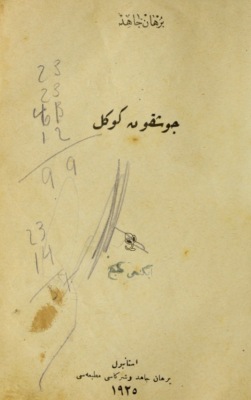 برهان جاهد
جوشقون كوكل
23
23
46
12
99
23
14
ايكنجى طبع
استانبول
برهان جاهد وشركاسى مطبعه‌سى
١٩٢٥